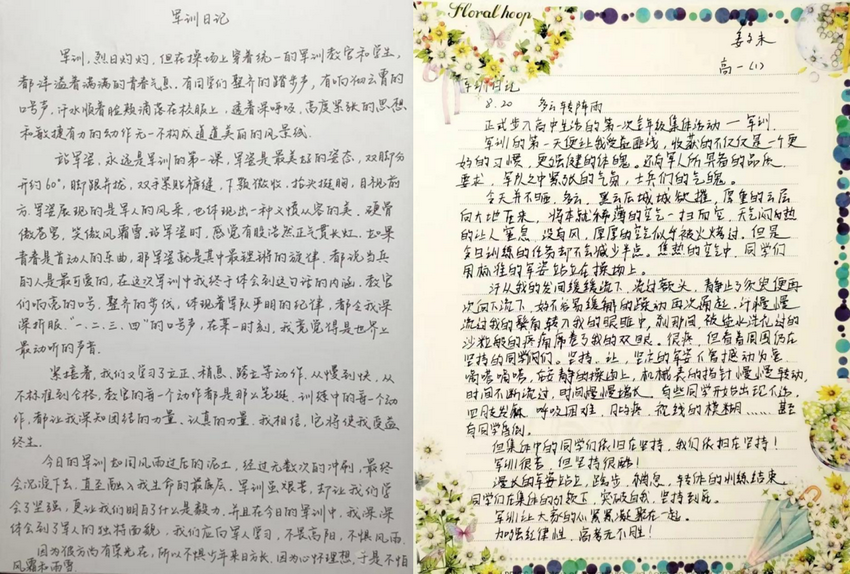 军训日记
军训,烈日灼灼,但在操场上穿着统一的军训教官和学生,
都洋溢着满满的青春气息。有同学们整齐的踏步声,有响彻云霄的
口号声,汗水顺着脸颊滴落在校服上,透着深呼吸,高度紧张的思想
和敏捷有力的动作无一不构成道道美丽的风景线。
站军姿,永远是军训的第一课,军姿是最美好的姿态,双脚分
开约60°,脚跟并拢,双手紧贴裤缝,下颚微收,抬头挺胸,目视前
方,军姿展现的是军人的风采,也体现出一种文慎从容的美,硬骨
傲苍穹,笑傲风霜雪。站军姿时,感觉有股浩然正气贯长虹。如果
青春是首动人的乐曲,那军姿就是其中最铿锵的旋律,都说当兵
的人是最可爱的,在这次军训中我终于体会到这句话的内涵,教官
们响亮的口号,整齐的步伐,体现着军队严明的纪律,都令我深
深折服。"一、二、三、四"的口号声,在某一时刻,我竟觉得是世界上
最动听的声音。
紧接着,我们又学习了立正、稍息、跨立等动作,从慢到快,从
不标准到合格,教官的每一个动作都是那么笔挺,训练中的每一个动
作,都让我深知团结的力量,认真的力量,我相信,它将使我受益
终生。
今日的军训如同风雨过后的泥土,经过无数次的冲刷,最终
会沉淀下去,直至融入我生命的最底层。军训虽艰苦,却让我们学
会了坚强,更让我们明白了什么是毅力,并且在今日的军训中,我深深
体会到了军人的独特面貌,我们应向军人学习,不畏高阳,不惧风雨,
因为很方向有荣光在,所以不惧少年来日方长,因为心怀理想,于是不怕
风霜和雨雪。
Floral hoop
姜子未
高一(1)
军训日记
8.20 多云转阵雨
正式步入高中生活的第一次全年级集体活动——军训。
军训的第一天便让我受益匪浅,收获的不仅仅是一个更
好的习惯,更强健的体魄。还有军人所具备的品质
要求,军队之中紧张的气氛,士兵们的气魄。
今天并不晒,多云,黑云压城城欲摧,厚重的云层
向大地压来,将本就稀薄的空气一扫而空,天气闷热
的让人窒息,没有风,厚厚的空气似乎被火烤过,但是
今日训练的任务却不会减少半点。焦热的空气中,同学们
用标准的军姿站立在操场上。
汗从我的发间缓缓流下,流过额头,静止了须臾便再
次向下流下,好不容易缓解的躁动再次席卷,汗慢慢
流过我的鬓角转入我的眼眶中,刹那间,被盐水洗礼过的
沙粒般的疼痛席卷了我的双眼。很疼,但看看周围仍在
坚持的同学们。坚持,让,坚定的军姿不曾撼动为意。
嘀嗒嘀嗒,在安静的操场上,机械表的指针慢慢转动,
时间不断流过,时间慢慢增长,有些同学开始出现不适,
四肢发麻,呼吸困难,视线的模糊……甚至
有同学晕倒。
但集体中的同学们依旧在坚持,我们依旧在坚持!
军训很苦,但坚持很酷!
漫长的军姿站立,跑步,稍息,转体的训练结束,
同学们在集体的分数下,突破自我,坚持到底。
军训让大家的心紧紧凝聚在一起。
加强纪律性,高考无不胜!